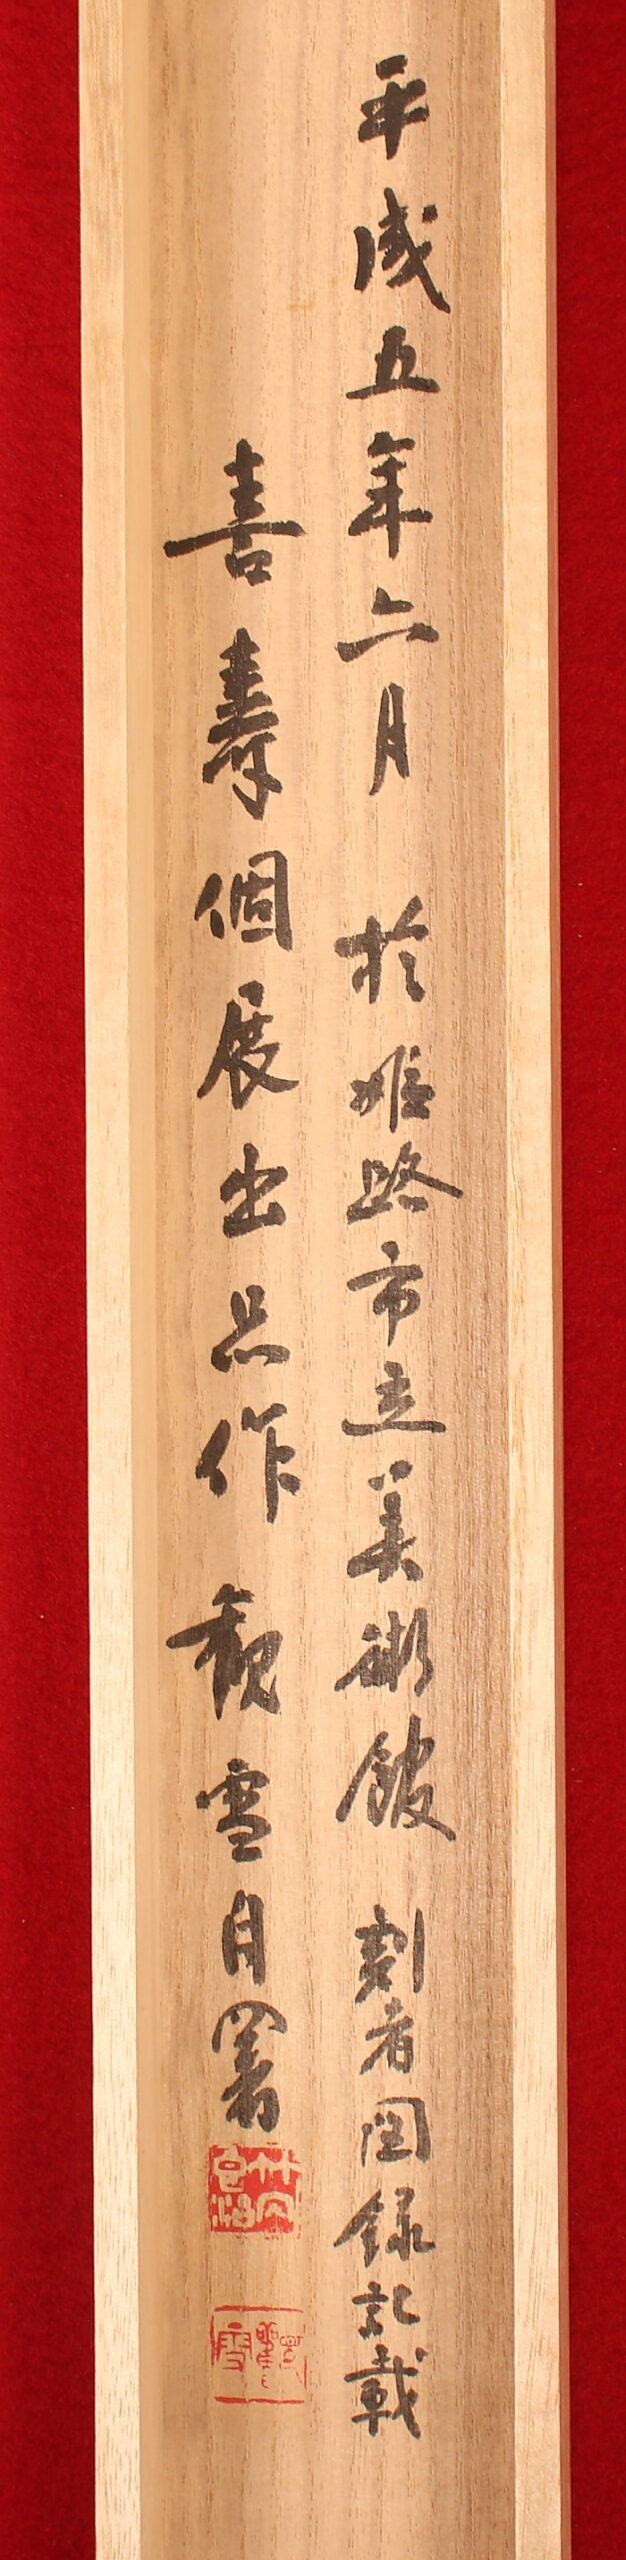 平成五年六月 於姫路市立美術館 割者図録記載
喜寿個展出品作 観雪自署